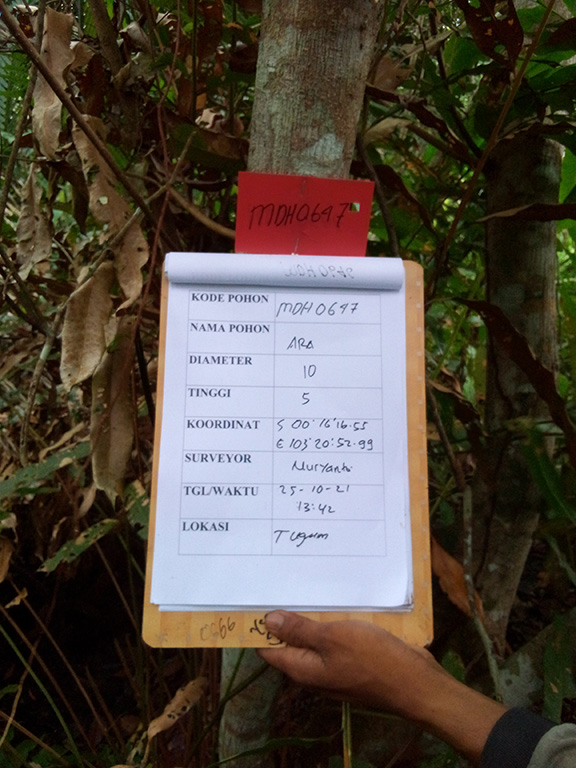 MDH0647
KODE POHON MDH0647
NAMA POHON ARA
DIAMETER 10
TINGGI 5
KOORDINAT S 00°16'16.55
E 103°20:52.99
SURVEYOR Muryanto
TGL/WAKTU 25-10-21
13:42
LOKASI